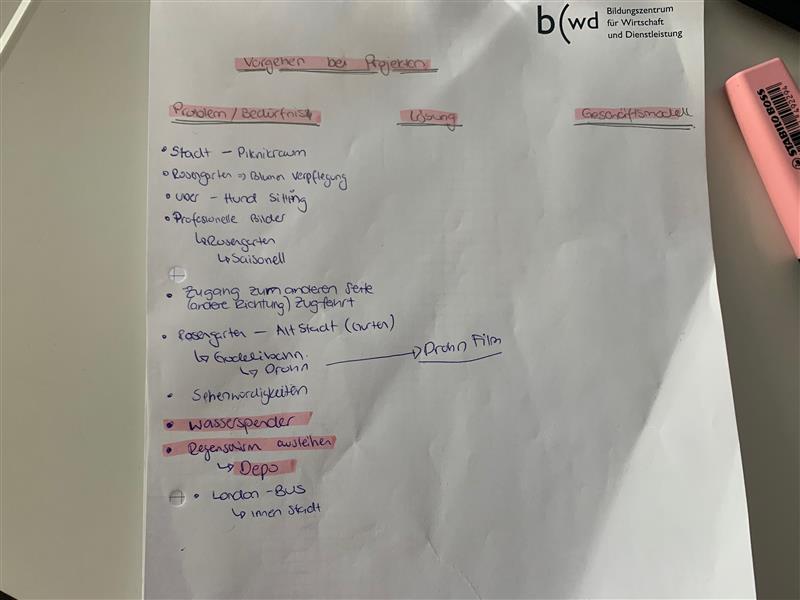 b(wd
Bildungszentrum
für Wirtschaft
und Dienstleistung
Vorgehen bei Projekten
Problem / Bedürfnis
Lösung
Geschäftsmodell
• Stadt – Piknikraum
• Rosengarten => Blumen verpflegung
• Uber – Hund Sitting
• Profesionelle Bilder
↳ Rosengarten
↳ Saisonell
• Zugang zum anderen Seite
(andere Richtung) Zugfahrt
• Rosengarten – Alt Stadt (Garten)
↳ Godelibahn.
↳ Drohn → Drohn Film
• Sehenwürdigkeiten
• Wasserspender
• Regenschirm ausleihen
↳ Depo
• London – BUS
↳ innen Stadt
STABILO BOSS